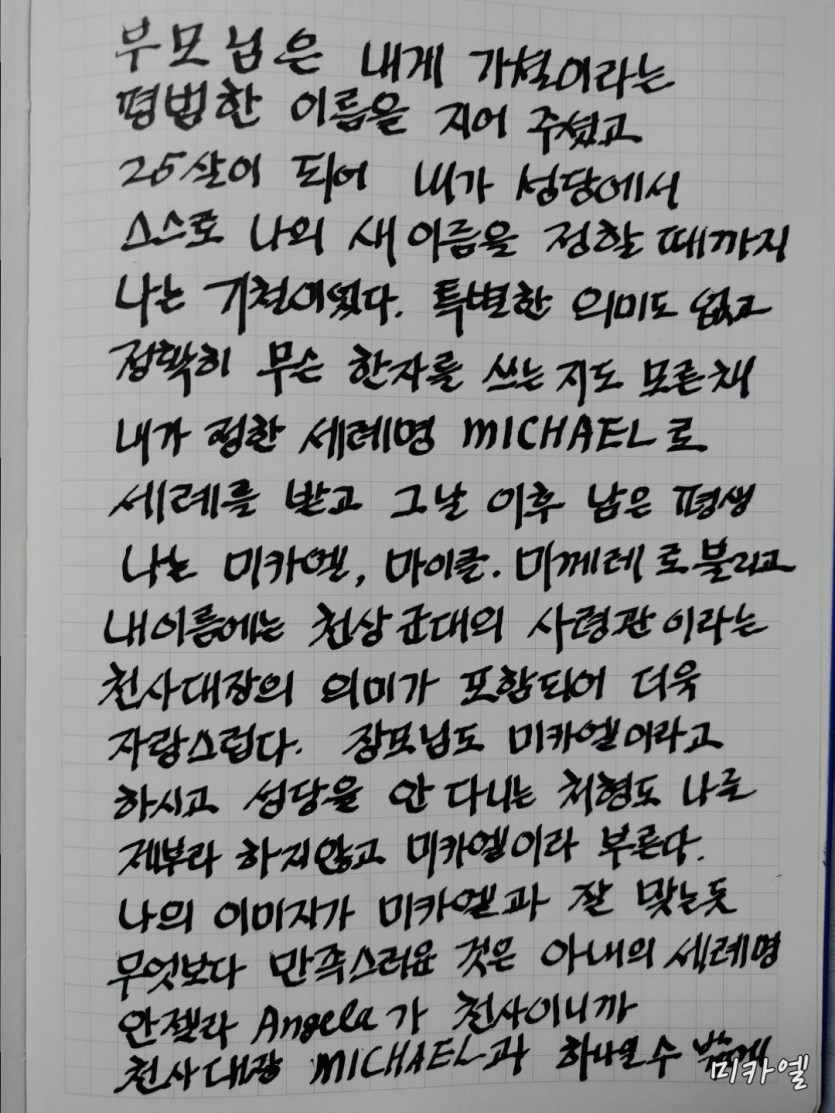 부모님은 내게 기철이라는
평범한 이름을 지어 주셨고
25살이 되어 내가 성당에서
스스로 나의 새 이름을 정할 때까지
나는 기철이였다. 특별한 의미도 없고
정확히 무슨 한자를 쓰는지도 모른채
내가 정한 세례명 MICHAEL로
세례를 받고 그날 이후 남은 평생
나는 미카엘, 마이클. 미께레로 불리고
내이름에는 천상군대의 사령관이라는
천사대장의 의미가 포함되어 더욱
자랑스럽다. 장모님도 미카엘이라고
하시고 성당을 안 다니는 처형도 나를
제부라 하지않고 미카엘이라 부른다.
나의 이미지가 미카엘과 잘 맞는듯
무엇보다 만족스러운 것은 아내의 세례명
안젤라 Angela가 천사이니까
천사대장 MICHAEL과 하나일 수 밖에
미카엘